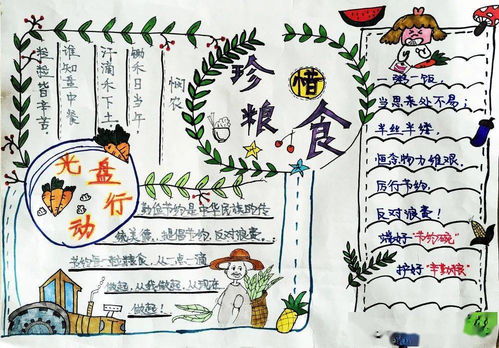 悯农
锄禾日当午,
汗滴禾下土。
谁知盘中餐
粒粒皆辛苦。
珍惜
粮食
光盘
行动
勤俭节约是中华民族的传
统美德,提倡节约,反对浪费。
节约每一粒粮食,从一点一滴
做起,从我做起,从现在
做起!
一粥一饭,
当思来处不易;
半丝半缕,
恒念物力维艰,
厉行节约,
反对浪费!
端好"节约碗"
护好